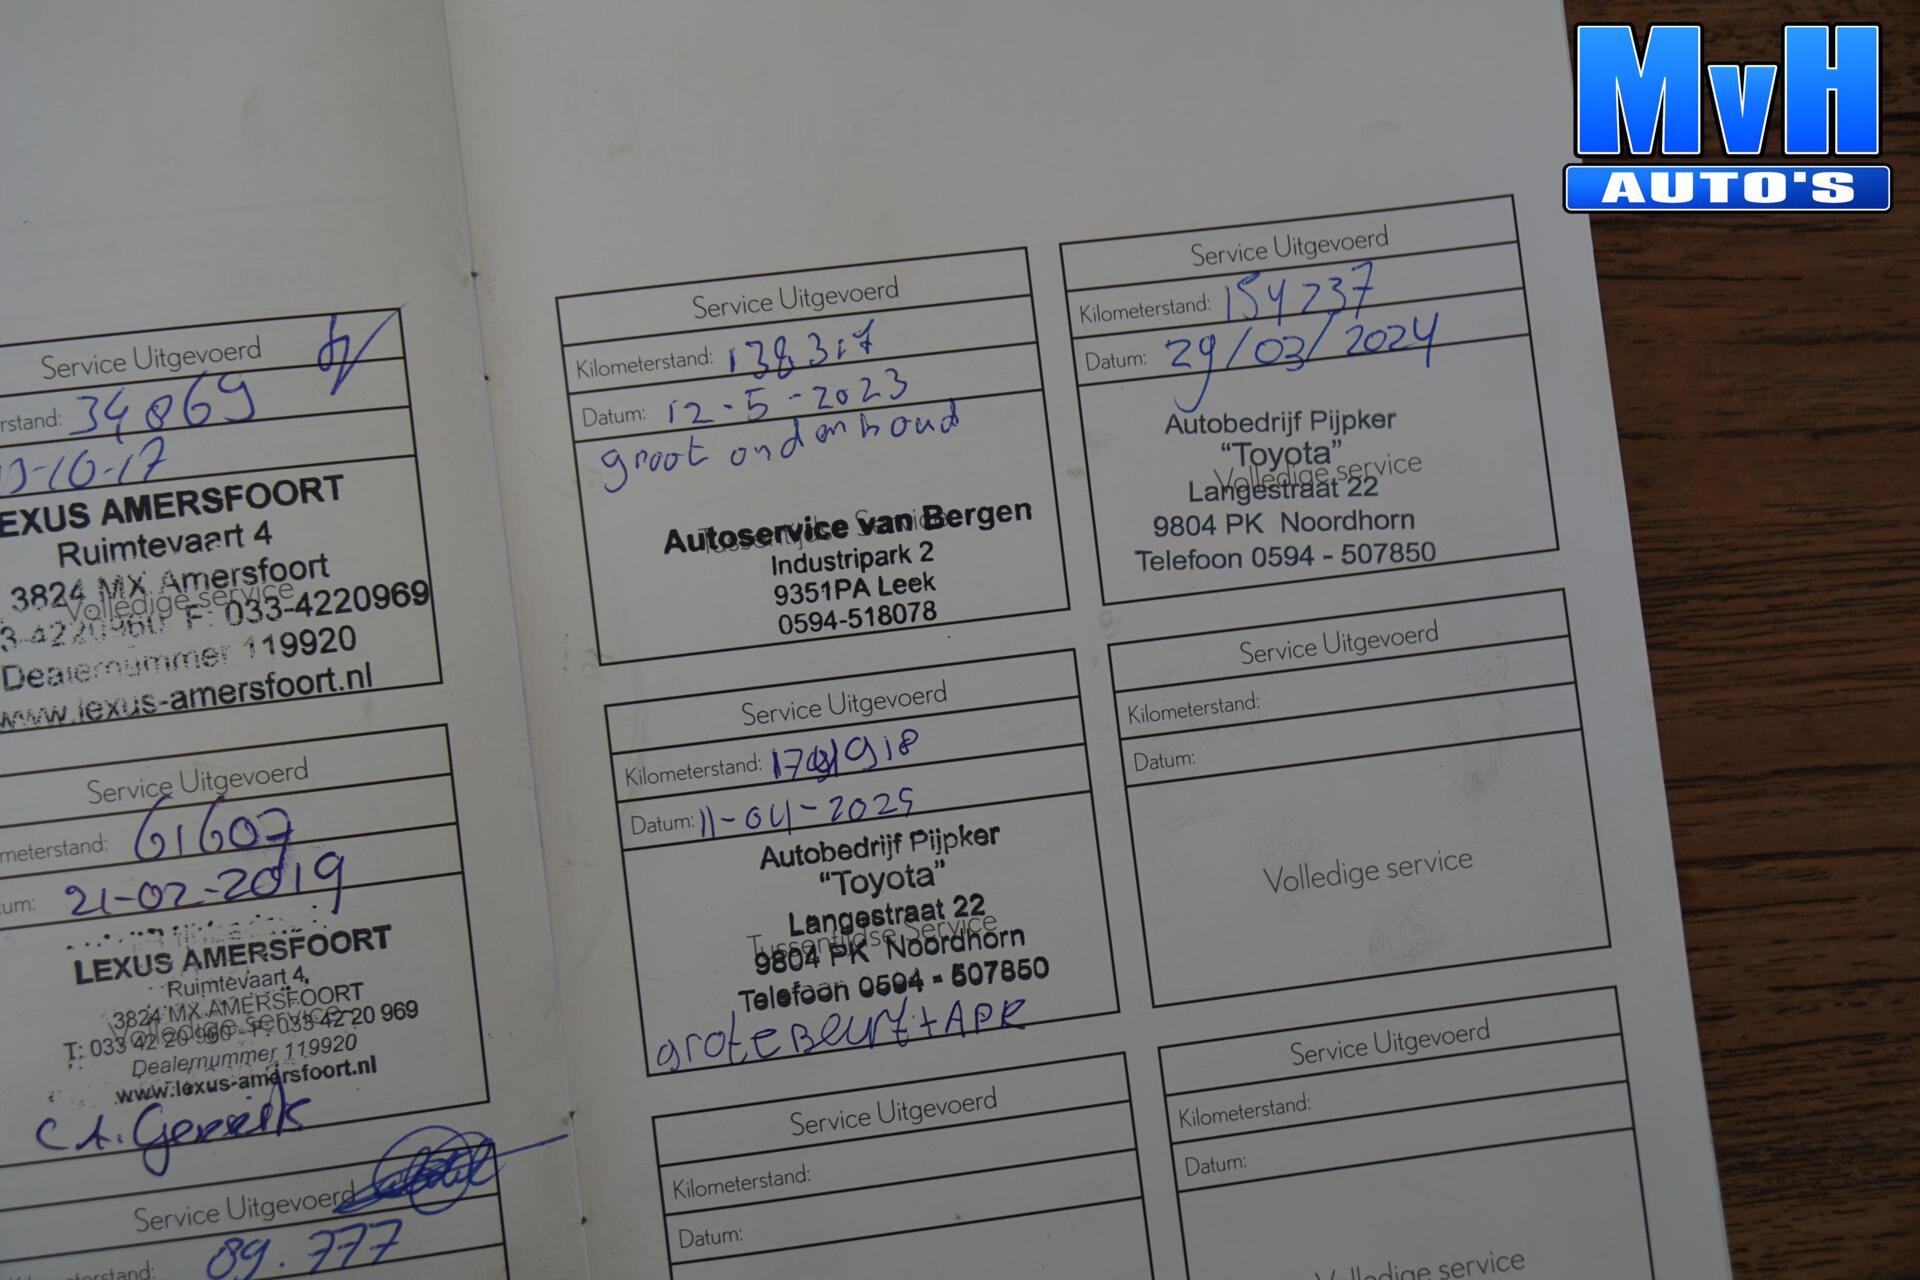 MvH
AUTO'S
Service Uitgevoerd
erstand: 34869
-10-17
EXUS AMERSFOORT
Ruimtevaart 4
3824 MX Amersfoort
Volledige service
3-4220960 F: 033-4220969
Dealernummer 119920
www.lexus-amersfoort.nl
Service Uitgevoerd
meterstand: 61607
tum: 21-02-2019
LEXUS AMERSFOORT
Ruimtevaart 4,
3824 MX AMERSFOORT
Volledige service
T: 033 42 20 960 - F: 033 42 20 969
Dealernummer 119920
www.lexus-amersfoort.nl
Service Uitgevoerd
terstand: 89.777
Service Uitgevoerd
Kilometerstand: 138317
Datum: 12-5-2023
groot onderhoud
Autoservice van Bergen
Tussentijdse Service
Industripark 2
9351PA Leek
0594-518078
Service Uitgevoerd
Kilometerstand:
Datum: 11-04-2025
Autobedrijf Pijpker
"Toyota"
Langestraat 22
Tussentijdse Service
9804 PK Noordhorn
Telefoon 0594 - 507850
grote Beurt + APK
Service Uitgevoerd
Kilometerstand:
Datum:
Service Uitgevoerd
Kilometerstand: 154237
Datum: 29/03/2024
Autobedrijf Pijpker
"Toyota"
Volledige service
Langestraat 22
9804 PK Noordhorn
Telefoon 0594 - 507850
Service Uitgevoerd
Kilometerstand:
Datum:
Volledige service
Service Uitgevoerd
Kilometerstand:
Datum:
Volledige service